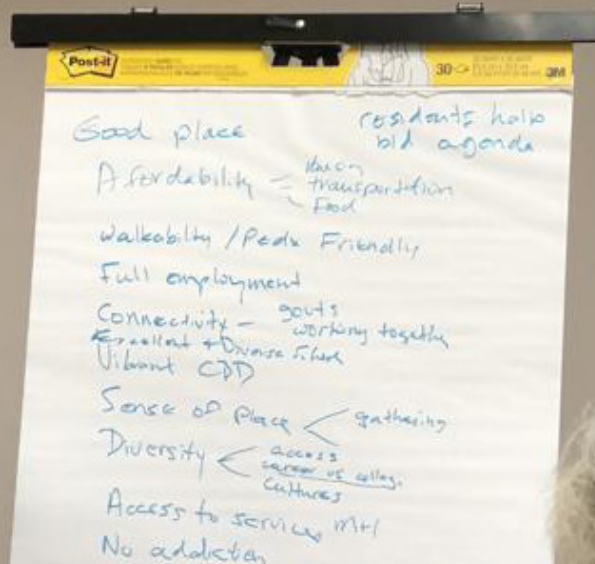 Post-it
30
3M
Good place
residents help
bld agenda
Affordability
transportation
Food
Walkability / Peds Friendly
Full employment
Connectivity - govts
working together
Excellent + Diverse
Vibrant CBD
Sense of Place
gathering
Diversity
access
career vs
cultures
Access to services
No addiction